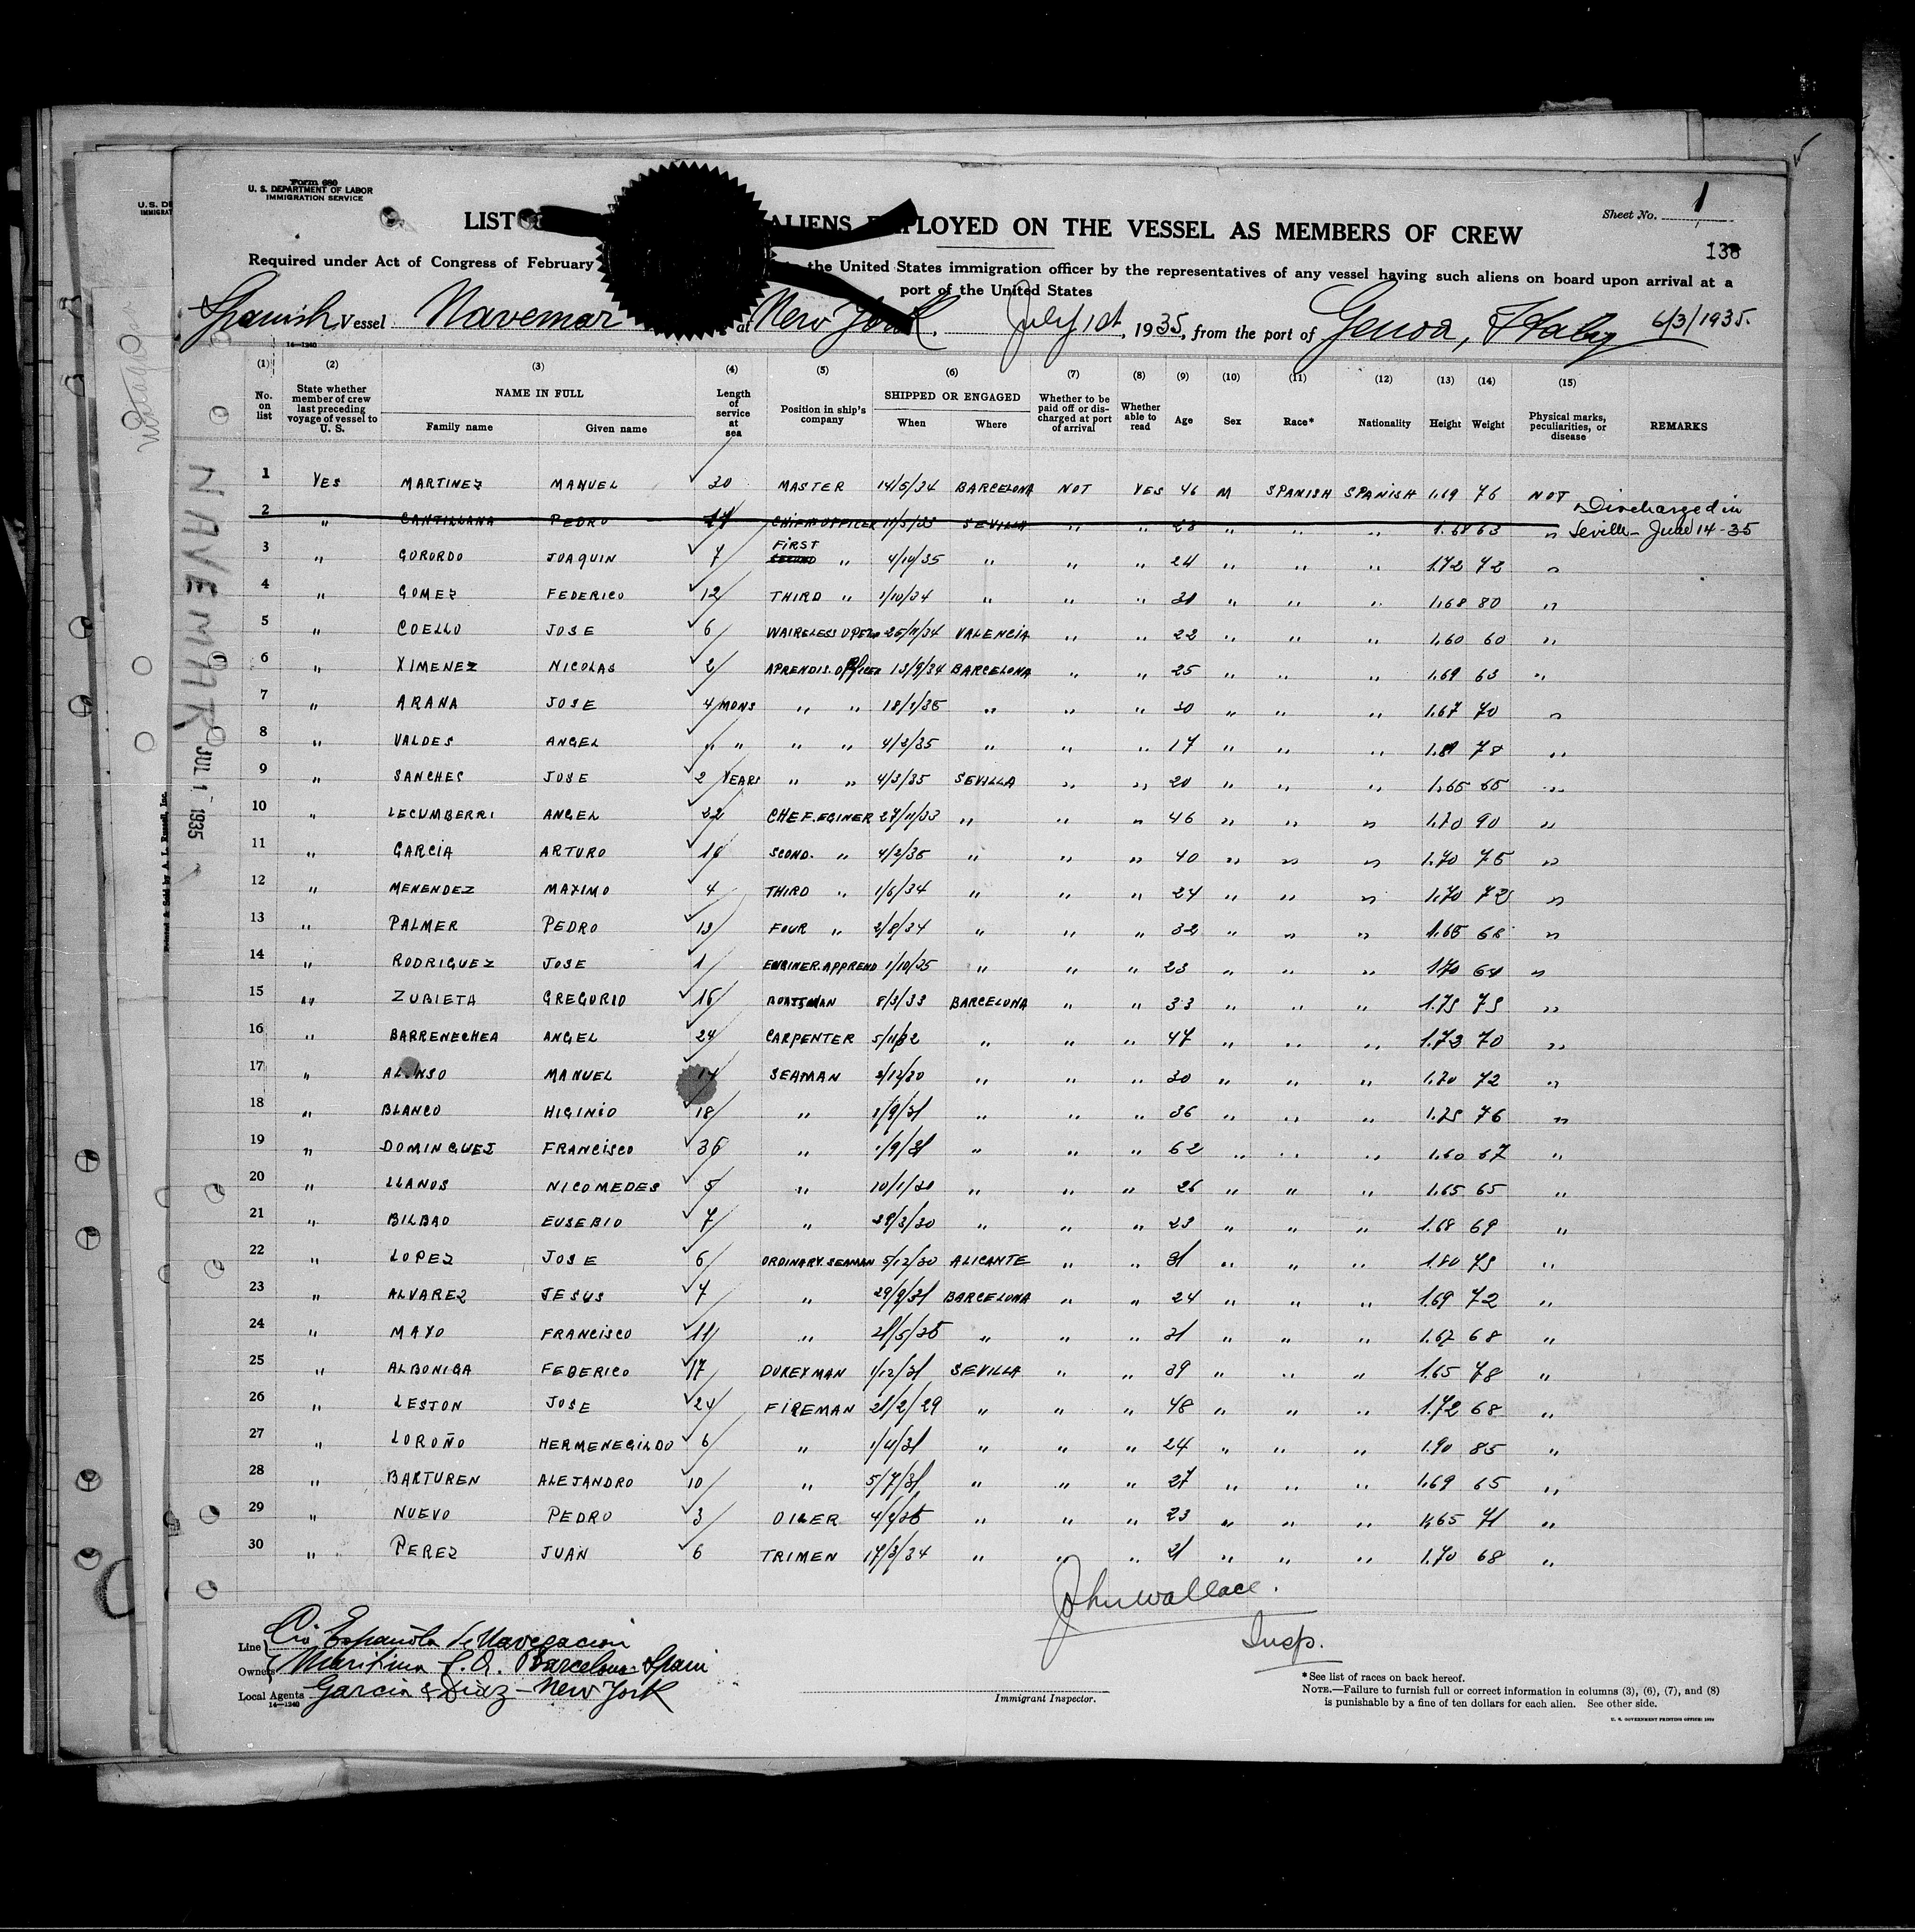 Form 680
U. S. DEPARTMENT OF LABOR
IMMIGRATION SERVICE
U. S. DE
IMMIGRAT
Sheet No. 1
138
LIST ALIENS EMPLOYED ON THE VESSEL AS MEMBERS OF CREW
Required under Act of Congress of February the United States immigration officer by the representatives of any vessel having such aliens on board upon arrival at a
port of the United States
Spanish Vessel Navemar at New York. July 1st, 1935, from the port of Genoa, Italy 6/3/1935.
14—1240
(1) (2) (3) (4) (5) (6) (7) (8) (9) (10) (11) (12) (13) (14) (15)
No. on list State whether member of crew last preceding voyage of vessel to U. S. NAME IN FULL Family name Given name Length of service at sea Position in ship's company SHIPPED OR ENGAGED When Where Whether to be paid off or discharged at port of arrival Whether able to read Age Sex Race* Nationality Height Weight Physical marks, peculiarities, or disease REMARKS
1 YES MARTINEZ MANUEL 30 MASTER 14/5/34 BARCELONA NOT YES 46 M SPANISH SPANISH 1.69 76 NOT
2 " CANTILLANA PEDRO CHIEF OFFICER SEVILLA " " 28 " " " 1.68 63 " Discharged in Seville - June 14-35
3 " GORORDO JOAQUIN 7 FIRST " 4/10/35 " " " 24 " " " 1.72 72 "
4 " GOMEZ FEDERICO 12 THIRD " 1/10/34 " " " 31 " " " 1.68 80 "
5 " COELLO JOSE 6 WAIRELESS OPER 25/11/34 VALENCIA " " 22 " " " 1.60 60 "
6 " XIMENEZ NICOLAS 2 APRENDIS. OFFICER 13/9/34 BARCELONA " " 25 " " " 1.69 63 "
7 " ARANA JOSE 4 MONS " " 18/1/35 " " " 30 " " " 1.67 70 "
8 " VALDES ANGEL " " " " 4/3/35 " " " 17 " " " 78 "
9 " SANCHES JOSE 2 YEARS " " 4/3/35 SEVILLA " " 20 " " " 1.65 65 "
10 " LECUMBERRI ANGEL 22 CHEF. EGINER 27/11/33 " " " 46 " " " 1.70 90 "
11 " GARCIA ARTURO 16 SCOND. " 4/2/35 " " " 40 " " " 1.70 75 "
12 " MENENDEZ MAXIMO 4 THIRD " 1/6/34 " " " 24 " " " 1.70 72 "
13 " PALMER PEDRO 13 FOUR " 2/8/34 " " " 32 " " " 1.65 66 "
14 " RODRIGUEZ JOSE 1 ENGINER. APPREND 1/10/35 " " " 23 " " " 1.70 64 "
15 " ZUBIETA GREGORIO 15 BOATSMAN 8/3/33 BARCELONA " " 33 " " " 1.75 75 "
16 " BARRENECHEA ANGEL 24 CARPENTER 5/11/32 " " " 47 " " " 1.73 70 "
17 " ALONSO MANUEL 14 SEAMAN 2/12/30 " " " 30 " " " 1.70 72 "
18 " BLANCO HIGINIO 18 " 1/9/31 " " " 36 " " " 1.75 76 "
19 " DOMINGUEZ FRANCISCO 36 " 1/9/31 " " " 62 " " " 1.60 67 "
20 " LLANOS NICOMEDES 5 " 10/1/30 " " " 26 " " " 1.65 65 "
21 " BILBAO EUSEBIO 7 " 29/3/30 " " " 23 " " " 1.68 69 "
22 " LOPEZ JOSE 6 ORDINARY. SEAMAN 5/12/30 ALICANTE " " 31 " " " 1.80 75 "
23 " ALVAREZ JESUS 7 " 29/9/31 BARCELONA " " 24 " " " 1.69 72 "
24 " MAYO FRANCISCO 11 " 21/5/35 " " " 31 " " " 1.67 68 "
25 " ALBONIGA FEDERICO 17 DUKEYMAN 1/12/31 SEVILLA " " 39 " " " 1.65 78 "
26 " LESTON JOSE 24 FIREMAN 21/2/29 " " " 48 " " " 1.72 68 "
27 " LOROÑO HERMENEGILDO 6 " 1/4/31 " " " 24 " " " 1.90 85 "
28 " BARTUREN ALEJANDRO 10 " 5/7/31 " " " 27 " " " 1.69 65 "
29 " NUEVO PEDRO 3 OILER 4/2/35 " " " 23 " " " 1.65 71 "
30 " PEREZ JUAN 6 TRIMEN 17/3/34 " " " 21 " " " 1.70 68 "
NAVEMAR
JUL 1 1935
Printed & Sold by A. L. Russell, Inc.
John Wallace.
Insp.
Line Cia Española de Navegacion
Owners Maritima S.A. Barcelona Spain
Local Agents Garcia & Diaz - New York
14—1240
Immigrant Inspector.
*See list of races on back hereof.
NOTE.—Failure to furnish full or correct information in columns (3), (6), (7), and (8)
is punishable by a fine of ten dollars for each alien. See other side.
U. S. GOVERNMENT PRINTING OFFICE: